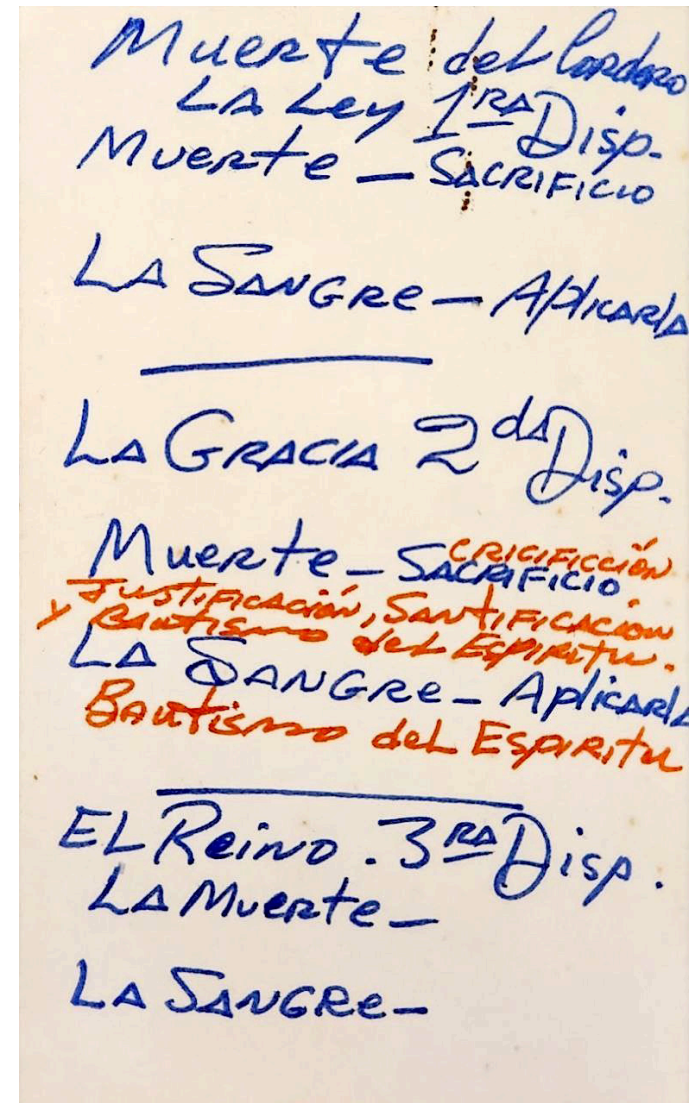 Muerte del Cordero
LA Ley 1RA Disp.
Muerte — SACRIFICIO
LA SANGRe — Aplicarla
LA GRACIA 2dA Disp.
Muerte — SACRIFICIO CRICIFICCIÓN
Justificación, SANtIFICACIÓN
y Bautismo del Espiritu.
LA SANGRe — Aplicarla
Bautismo del Espiritu
EL Reino. 3RA Disp.
LA Muerte —
LA SANGRe —